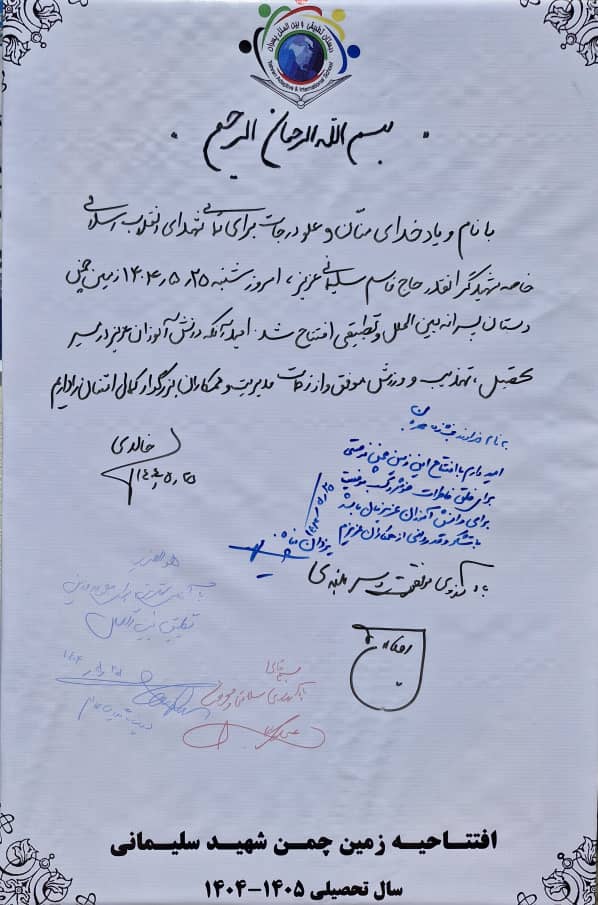 دبستان تطبیقی و بین الملل پسران تهران
Tehran Adaptive & International School
بسم الله الرحمان الرحیم
با نام و یاد خدای منّان و علو درجات برای تمامی شهدای انقلاب اسلامی
خاصه شهید گرانقدر حاج قاسم سلیمانی عزیز، امروز شنبه ۱۴۰۴٫۵٫۲۵ زمین چمن
دبستان پسرانه بین الملل و تطبیقی افتتاح شد. امید آنکه دانش آموزان عزیز در مسیر
تحصیل، تهذیب و ورزش موفق و از زحمات مدیریت و همکاران بزرگوار کمال امتنان را داریم
خالدی
۱۴۰۴٫۵٫۲۵
به نام خداوند بخشنده مهربان
امیدوارم با افتتاح این زمین چمن فرصتی
برای خلق خاطرات خوش و کسب موفقیت
برای دانش آموزان عزیزمان باشد
با تشکر و قدردانی از همکاران عزیزم
۱۴۰۴٫۵٫۲۵
یزدان
با آرزوی موفقیت و سربلندی
هوالعزیز
با آرزوی
تطبیقی بین الملل
۱۴۰۴٫۵٫۲۵
با آرزوی سلامتی و موفقیت
افتتاحیه زمین چمن شهید سلیمانی
سال تحصیلی ۱۴۰۵-۱۴۰۴